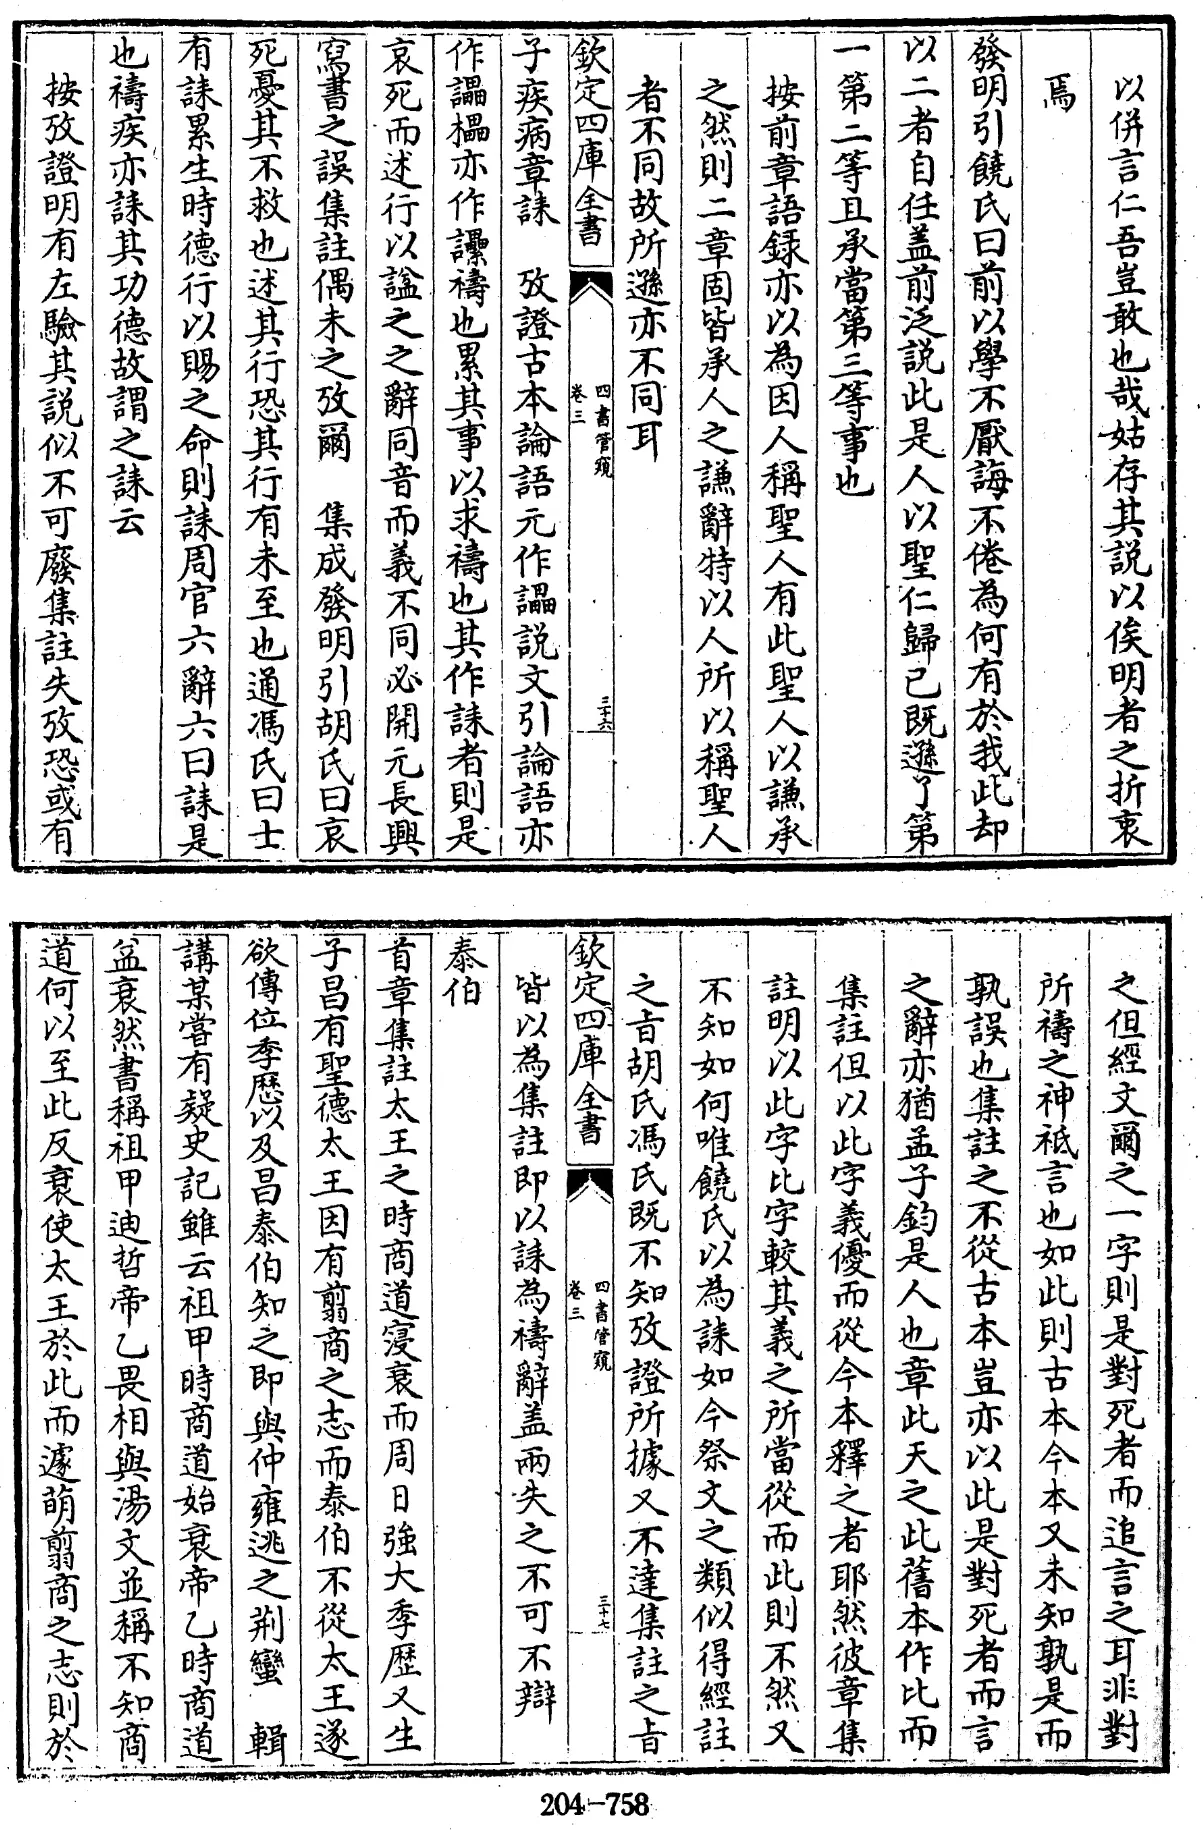 以併言仁吾豈敢也哉姑存其説以俟明者之折衷
焉
發明引饒氏曰前以學不厭誨不倦為何有於我此却
以二者自任盖前泛説此是人以聖仁歸已既遜了第
一第二等且承當第三等事也
按前章語録亦以為因人稱聖人有此聖人以謙承
之然則二章固皆承人之謙辭特以人所以稱聖人
者不同故所遜亦不同耳
欽定四庫全書
四書管窺
卷三
三十六
子疾病章誄 攷證古本論語元作讄説文引論語亦
作讄㯔亦作讓禱也累其事以求禱也其作誄者則是
哀死而述行以諡之之辭同音而義不同必開元長興
寫書之誤集註偶未之攷爾 集成發明引胡氏曰哀
死憂其不救也述其行恐其行有未至也通馮氏曰士
有誄累生時德行以賜之命則誄周官六辭六曰誄是
也禱疾亦誄其功德故謂之誄云
按攷證明有左驗其説似不可廢集註失攷恐或有
之但經文爾之一字則是對死者而追言之耳非對
所禱之神祇言也如此則古本今本又未知孰是而
孰誤也集註之不從古本豈亦以此是對死者而言
之辭亦猶孟子鈞是人也章此天之此舊本作比而
集註但以此字義優而從今本釋之者耶然彼章集
註明以此字比字較其義之所當從而此則不然又
不知如何唯饒氏以為誄如今祭文之類似得經註
之旨胡氏馮氏既不知攷證所據又不達集註之旨
欽定四庫全書
四書管窺
卷三
三十七
皆以為集註即以誄為禱辭盖兩失之不可不辯
泰伯
首章集註太王之時商道寖衰而周日強大季歷又生
子昌有聖德太王因有翦商之志而泰伯不從太王遂
欲傳位季歷以及昌泰伯知之即與仲雍逃之荆蠻 輯
講某嘗有疑史記雖云祖甲時商道始衰帝乙時商道
益衰然書稱祖甲迪哲帝乙畏相與湯文並稱不知商
道何以至此反衰使太王於此而遽萌翦商之志則於
204-758